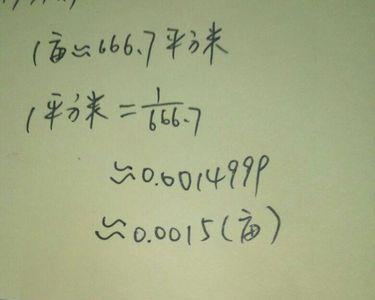 1亩≈666.7平方米
1平方米=1/666.7
≈0.0014999
≈0.0015(亩)